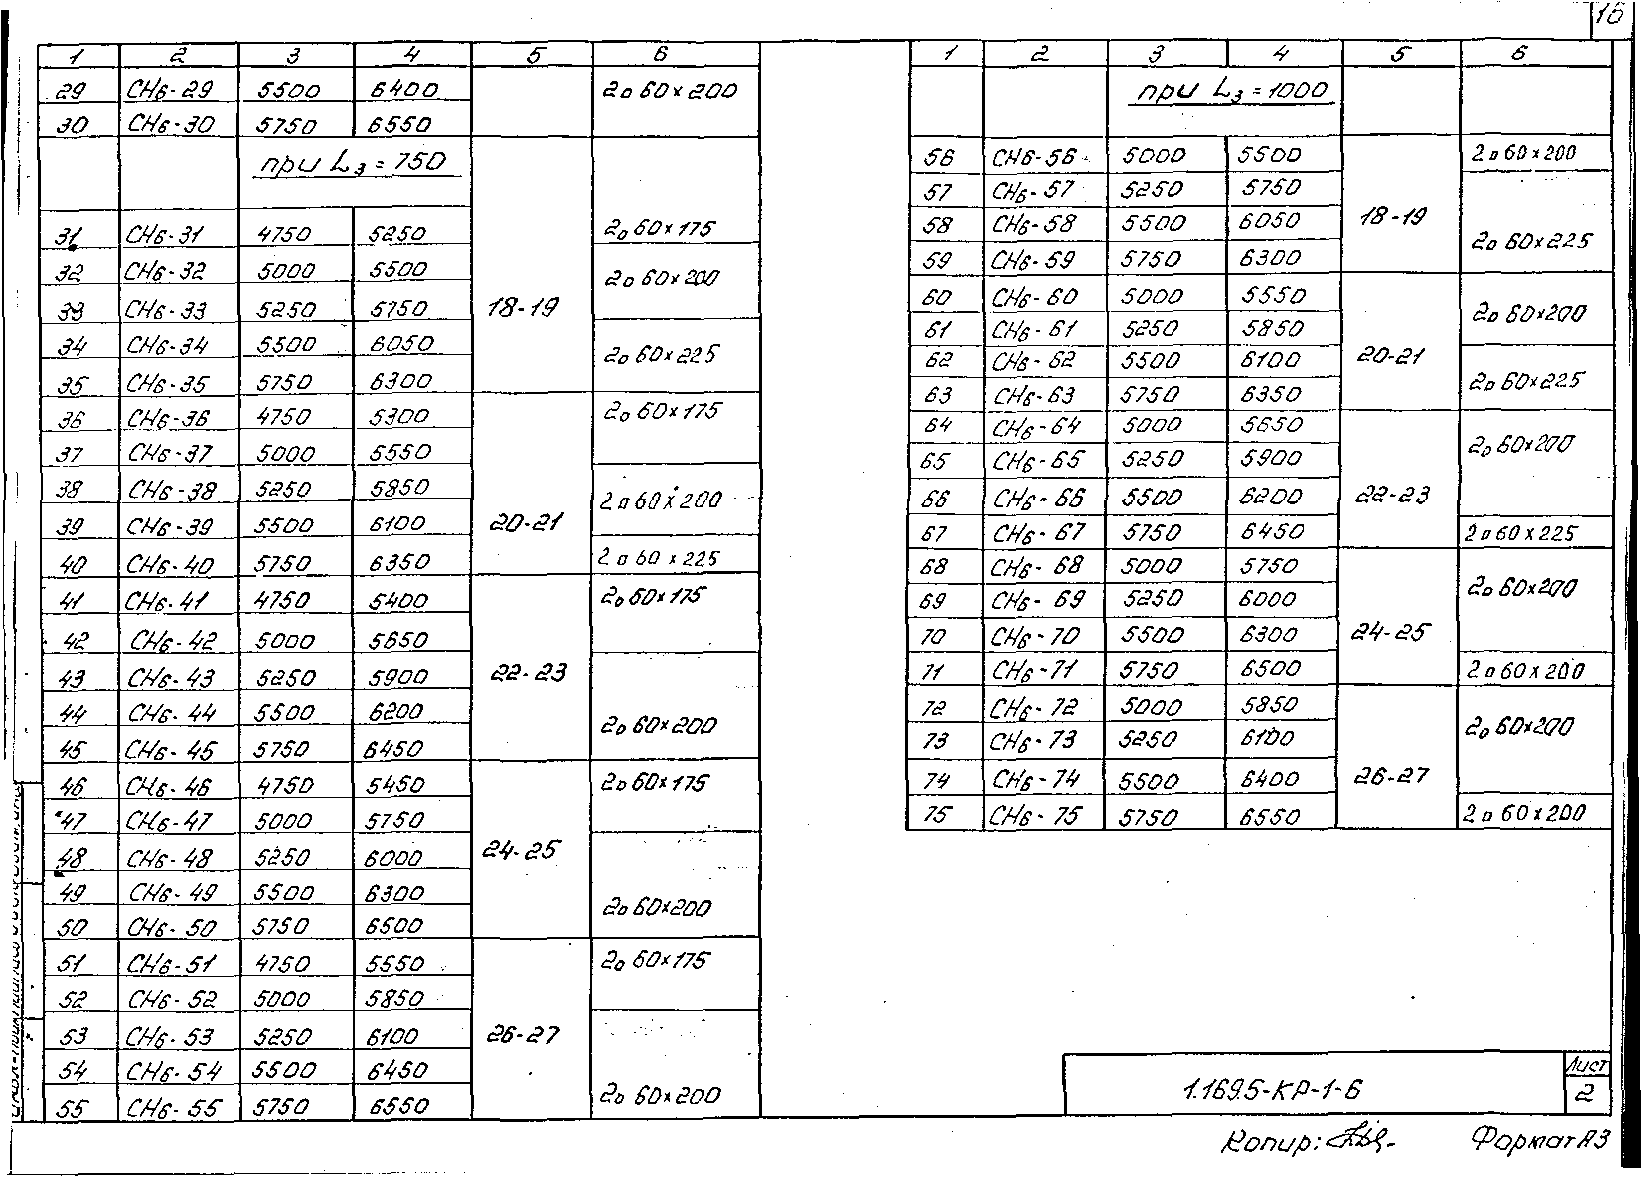 16
1 2 3 4 5 6
29 СН6-29 5500 6400 2▫60×200
30 СН6-30 5750 6550
при L₃=750
31 СН6-31 4750 5250 2▫60×175
32 СН6-32 5000 5500 2▫60×200
33 СН6-33 5250 5750 18-19
34 СН6-34 5500 6050 2▫60×225
35 СН6-35 5750 6300
36 СН6-36 4750 5300 2▫60×175
37 СН6-37 5000 5550
38 СН6-38 5250 5850 2▫60×200
39 СН6-39 5500 6100 20-21
40 СН6-40 5750 6350 2▫60×225
41 СН6-41 4750 5400 2▫60×175
42 СН6-42 5000 5650
43 СН6-43 5250 5900 22-23
44 СН6-44 5500 6200 2▫60×200
45 СН6-45 5750 6450
46 СН6-46 4750 5450 2▫60×175
47 СН6-47 5000 5750
48 СН6-48 5250 6000 24-25
49 СН6-49 5500 6300 2▫60×200
50 СН6-50 5750 6500
51 СН6-51 4750 5550 2▫60×175
52 СН6-52 5000 5850
53 СН6-53 5250 6100 26-27
54 СН6-54 5500 6450
55 СН6-55 5750 6550 2▫60×200
1 2 3 4 5 6
при L₃=1000
56 СН6-56 5000 5500 2▫60×200
57 СН6-57 5250 5750
58 СН6-58 5500 6050 18-19
59 СН6-59 5750 6300 2▫60×225
60 СН6-60 5000 5550 2▫60×200
61 СН6-61 5250 5850
62 СН6-62 5500 6100 20-21
63 СН6-63 5750 6350 2▫60×225
64 СН6-64 5000 5650 2▫60×200
65 СН6-65 5250 5900
66 СН6-66 5500 6200 22-23
67 СН6-67 5750 6450 2▫60×225
68 СН6-68 5000 5750 2▫60×200
69 СН6-69 5250 6000
70 СН6-70 5500 6300 24-25
71 СН6-71 5750 6500 2▫60×200
72 СН6-72 5000 5850 2▫60×200
73 СН6-73 5250 6100
74 СН6-74 5500 6400 26-27
75 СН6-75 5750 6550 2▫60×200
1.169.5-КР-1-6
Лист
2
Копир:
Формат А3